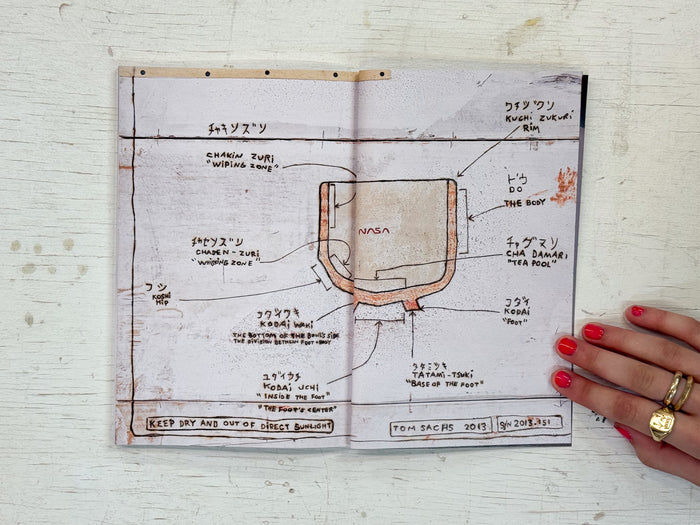 チャキンズリ
CHAKIN ZURI
"WIPING ZONE"
クチヅクリ
KUCHI ZUKURI
RIM
ドウ
DO
THE BODY
NASA
チャセンズリ
CHASEN-ZURI
"WHISKING ZONE"
チャダマリ
CHA DAMARI
"TEA POOL"
コシ
KOSHI
HIP
コダイワキ
KODAI WAKI
THE BOTTOM OF THE BOWL'S SIDE
THE DIVISION BETWEEN FOOT + BODY
コダイ
KODAI
"FOOT"
コダイウチ
KODAI UCHI
"INSIDE THE FOOT"
"THE FOOT'S CENTER"
タタミツキ
TATAMI-TSUKI
"BASE OF THE FOOT"
KEEP DRY AND OUT OF DIRECT SUNLIGHT
TOM SACHS 2013
S/N 2013.151